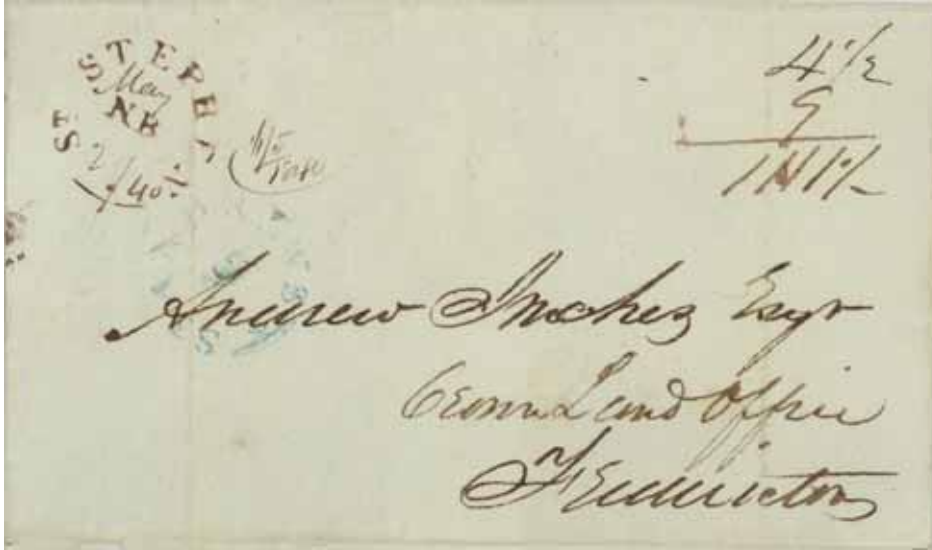 ST. STEPHEN
May
NB
2/40
4 1/2
9
1/1 1/2
Andrew Inches Esqr
Crown Land Office
Fredericton